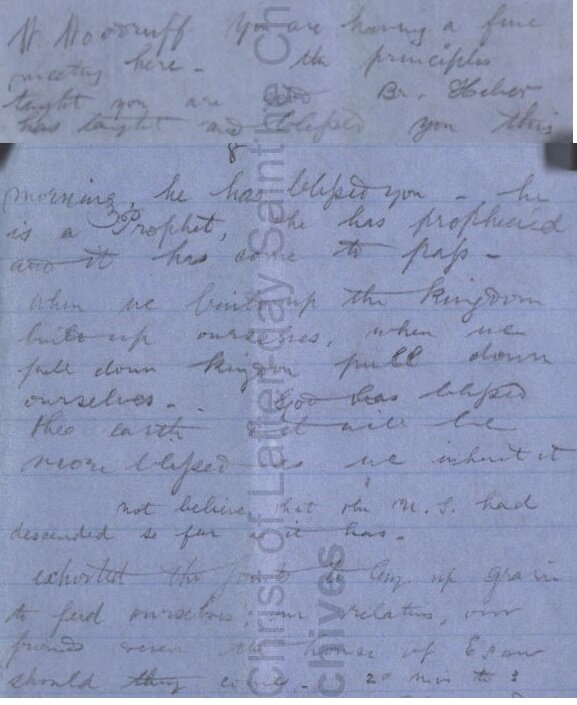 W Woodruff You are having a fine
meeting here - the principles
taught you are God Br. Heber
has taught and blessed you this
8
morning, he has blessed you - he
is a Prophet, he has prophecied
and it has come to pass -
when we build up the Kingdom
built up ourselves, when we
pull down Kingdom pull down
ourselves - God has blessed
the earth & it will be
more blessed as we inherit it
not believe that the U. S. had
descended so far as it has -
exhorted the to lay up grain
to feed ourselves, our relatives, our
friends even the house of Esau
should they come - 20 min to 3
Christ of Latter-day Saints the Ch
chives